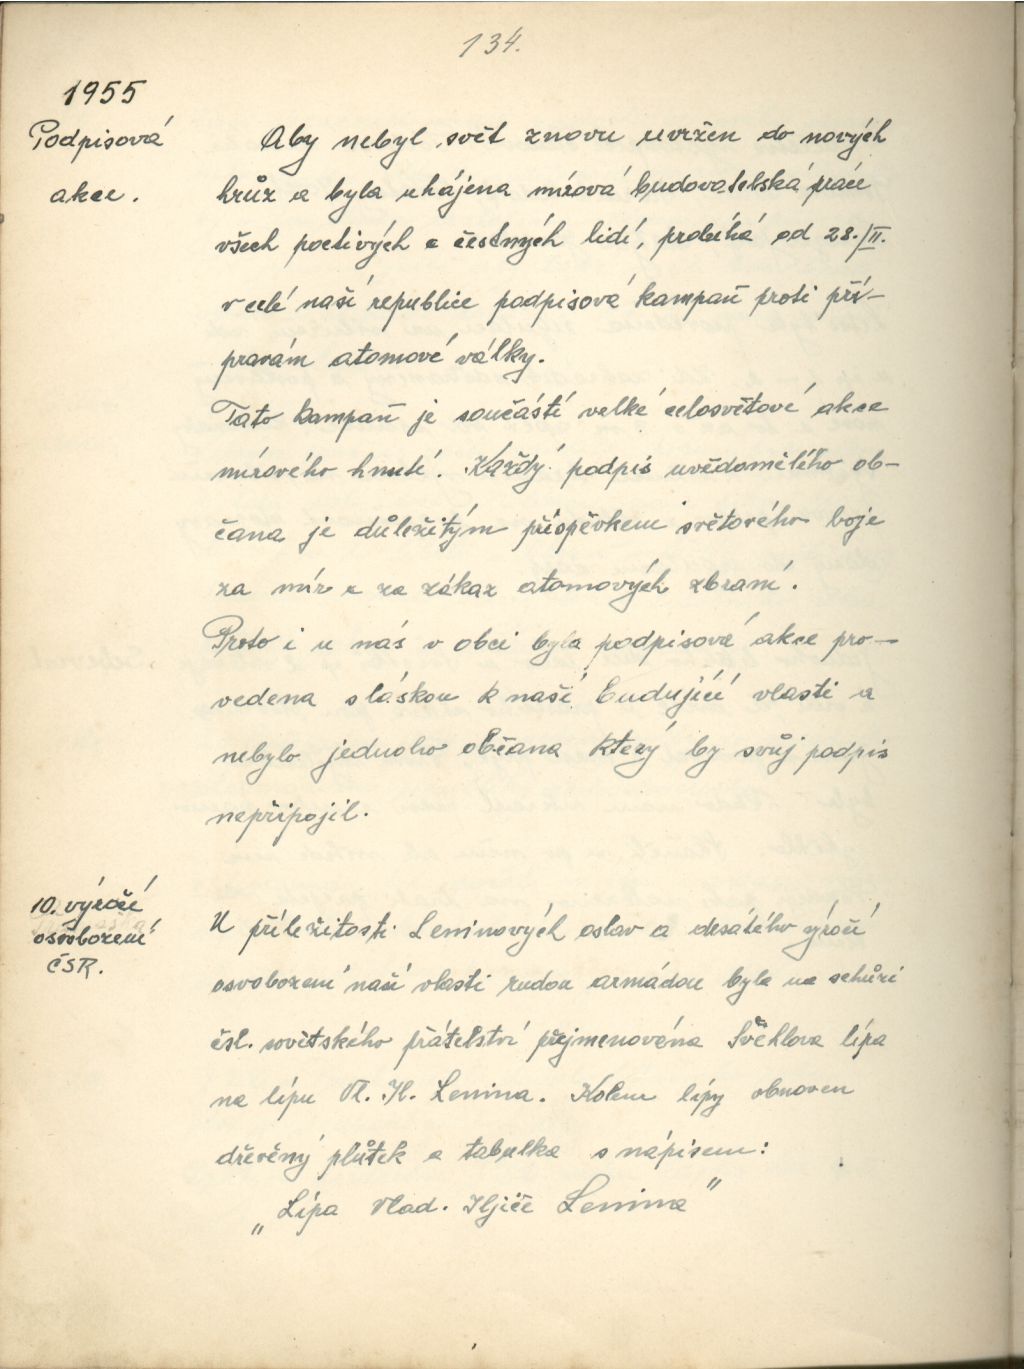 134.
1955
Podpisová
akce.
Aby nebyl svět znovu uvržen do nových
hrůz a byla uhájena mírová budovatelská práce
všech poctivých a čestných lidí, probíhá od 28./II.
v celé naší republice podpisová kampaň proti pří-
pravám atomové války.
Tato kampaň je součástí velké celosvětové akce
mírového hnutí. Každý podpis uvědomělého ob-
čana je důležitým příspěvkem světového boje
za mír a za zákaz atomových zbraní.
Proto i u nás v obci byla podpisová akce pro-
vedena s láskou k naší budující vlasti a
nebylo jednoho občana který by svůj podpis
nepřipojil.
10. výročí
osvobození
ČSR.
U příležitosti Leninových oslav a desátého výročí
osvobození naší vlasti rudou armádou byla na schůzi
čsl. sovětského přátelství přejmenována Švehlova lípa
na lípu Vl. Il. Lenina. Kolem lípy obnoven
dřevěný plůtek a tabulka s nápisem:
„Lípa Vlad. Iljiče Lenina"